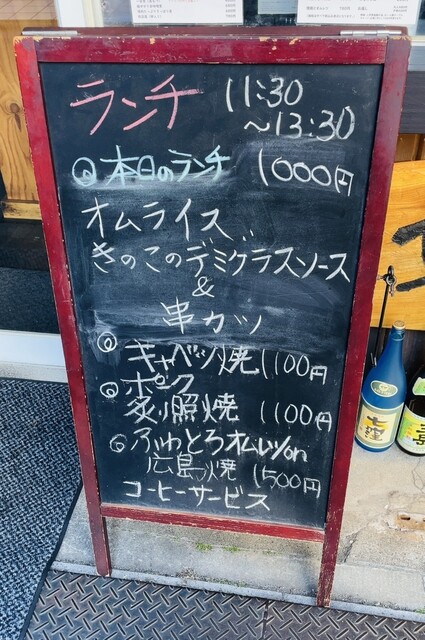 ランチ 11:30
〜13:30
◎ 本日のランチ 1000円
オムライス
きのこのデミグラスソース
&
串カツ
◎ キャベツ焼 1100円
◎ ポーク
炙り照焼 1100円
◎ ふわとろオムレツon
広島焼 1500円
コーヒーサービス